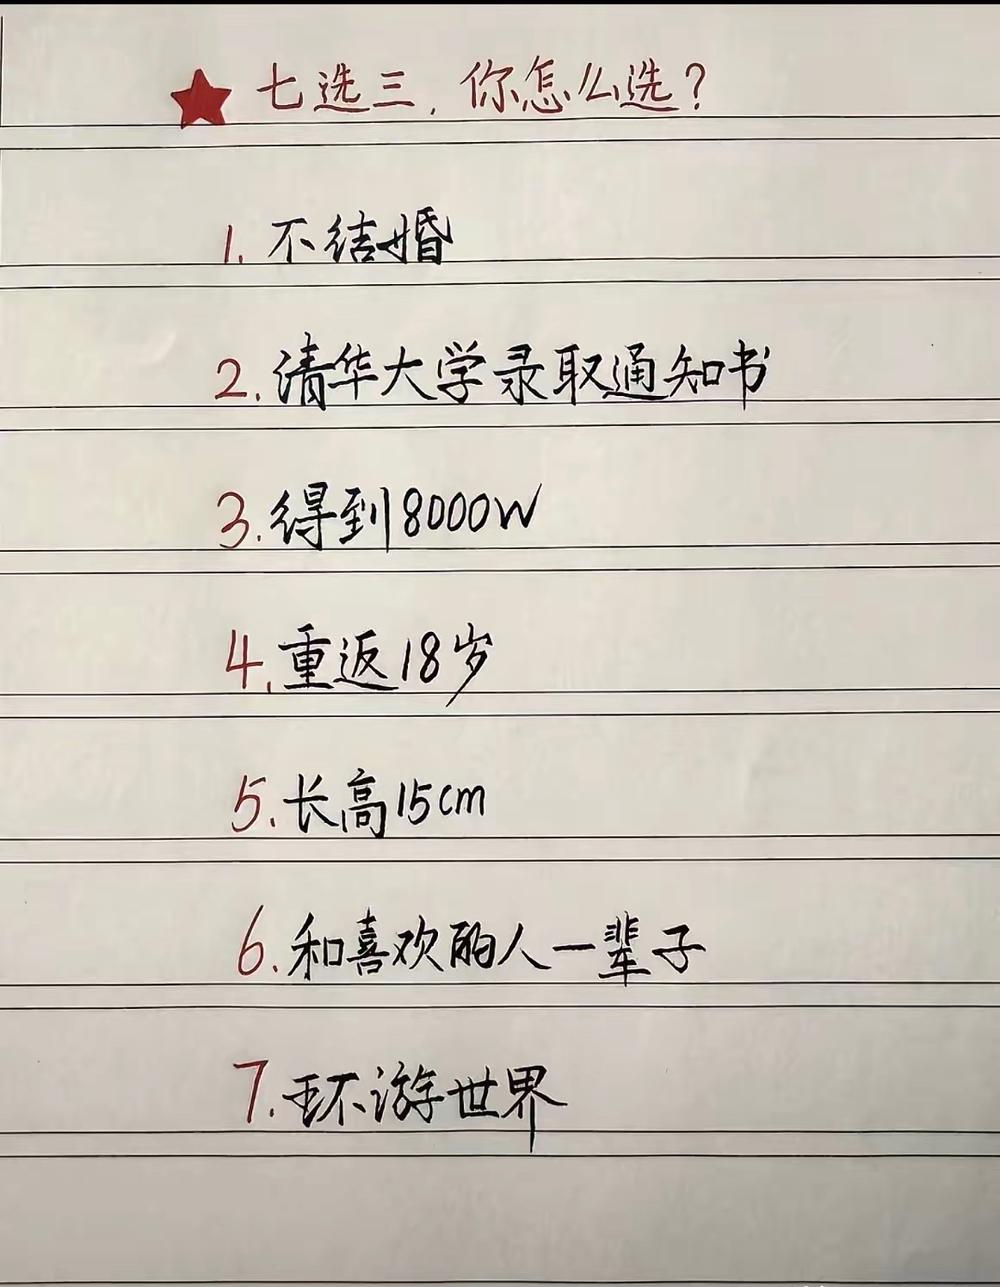 ★七选三，你怎么选？
1.不结婚
2.清华大学录取通知书
3.得到8000W
4.重返18岁
5.长高15cm
6.和喜欢的人一辈子
7.环游世界